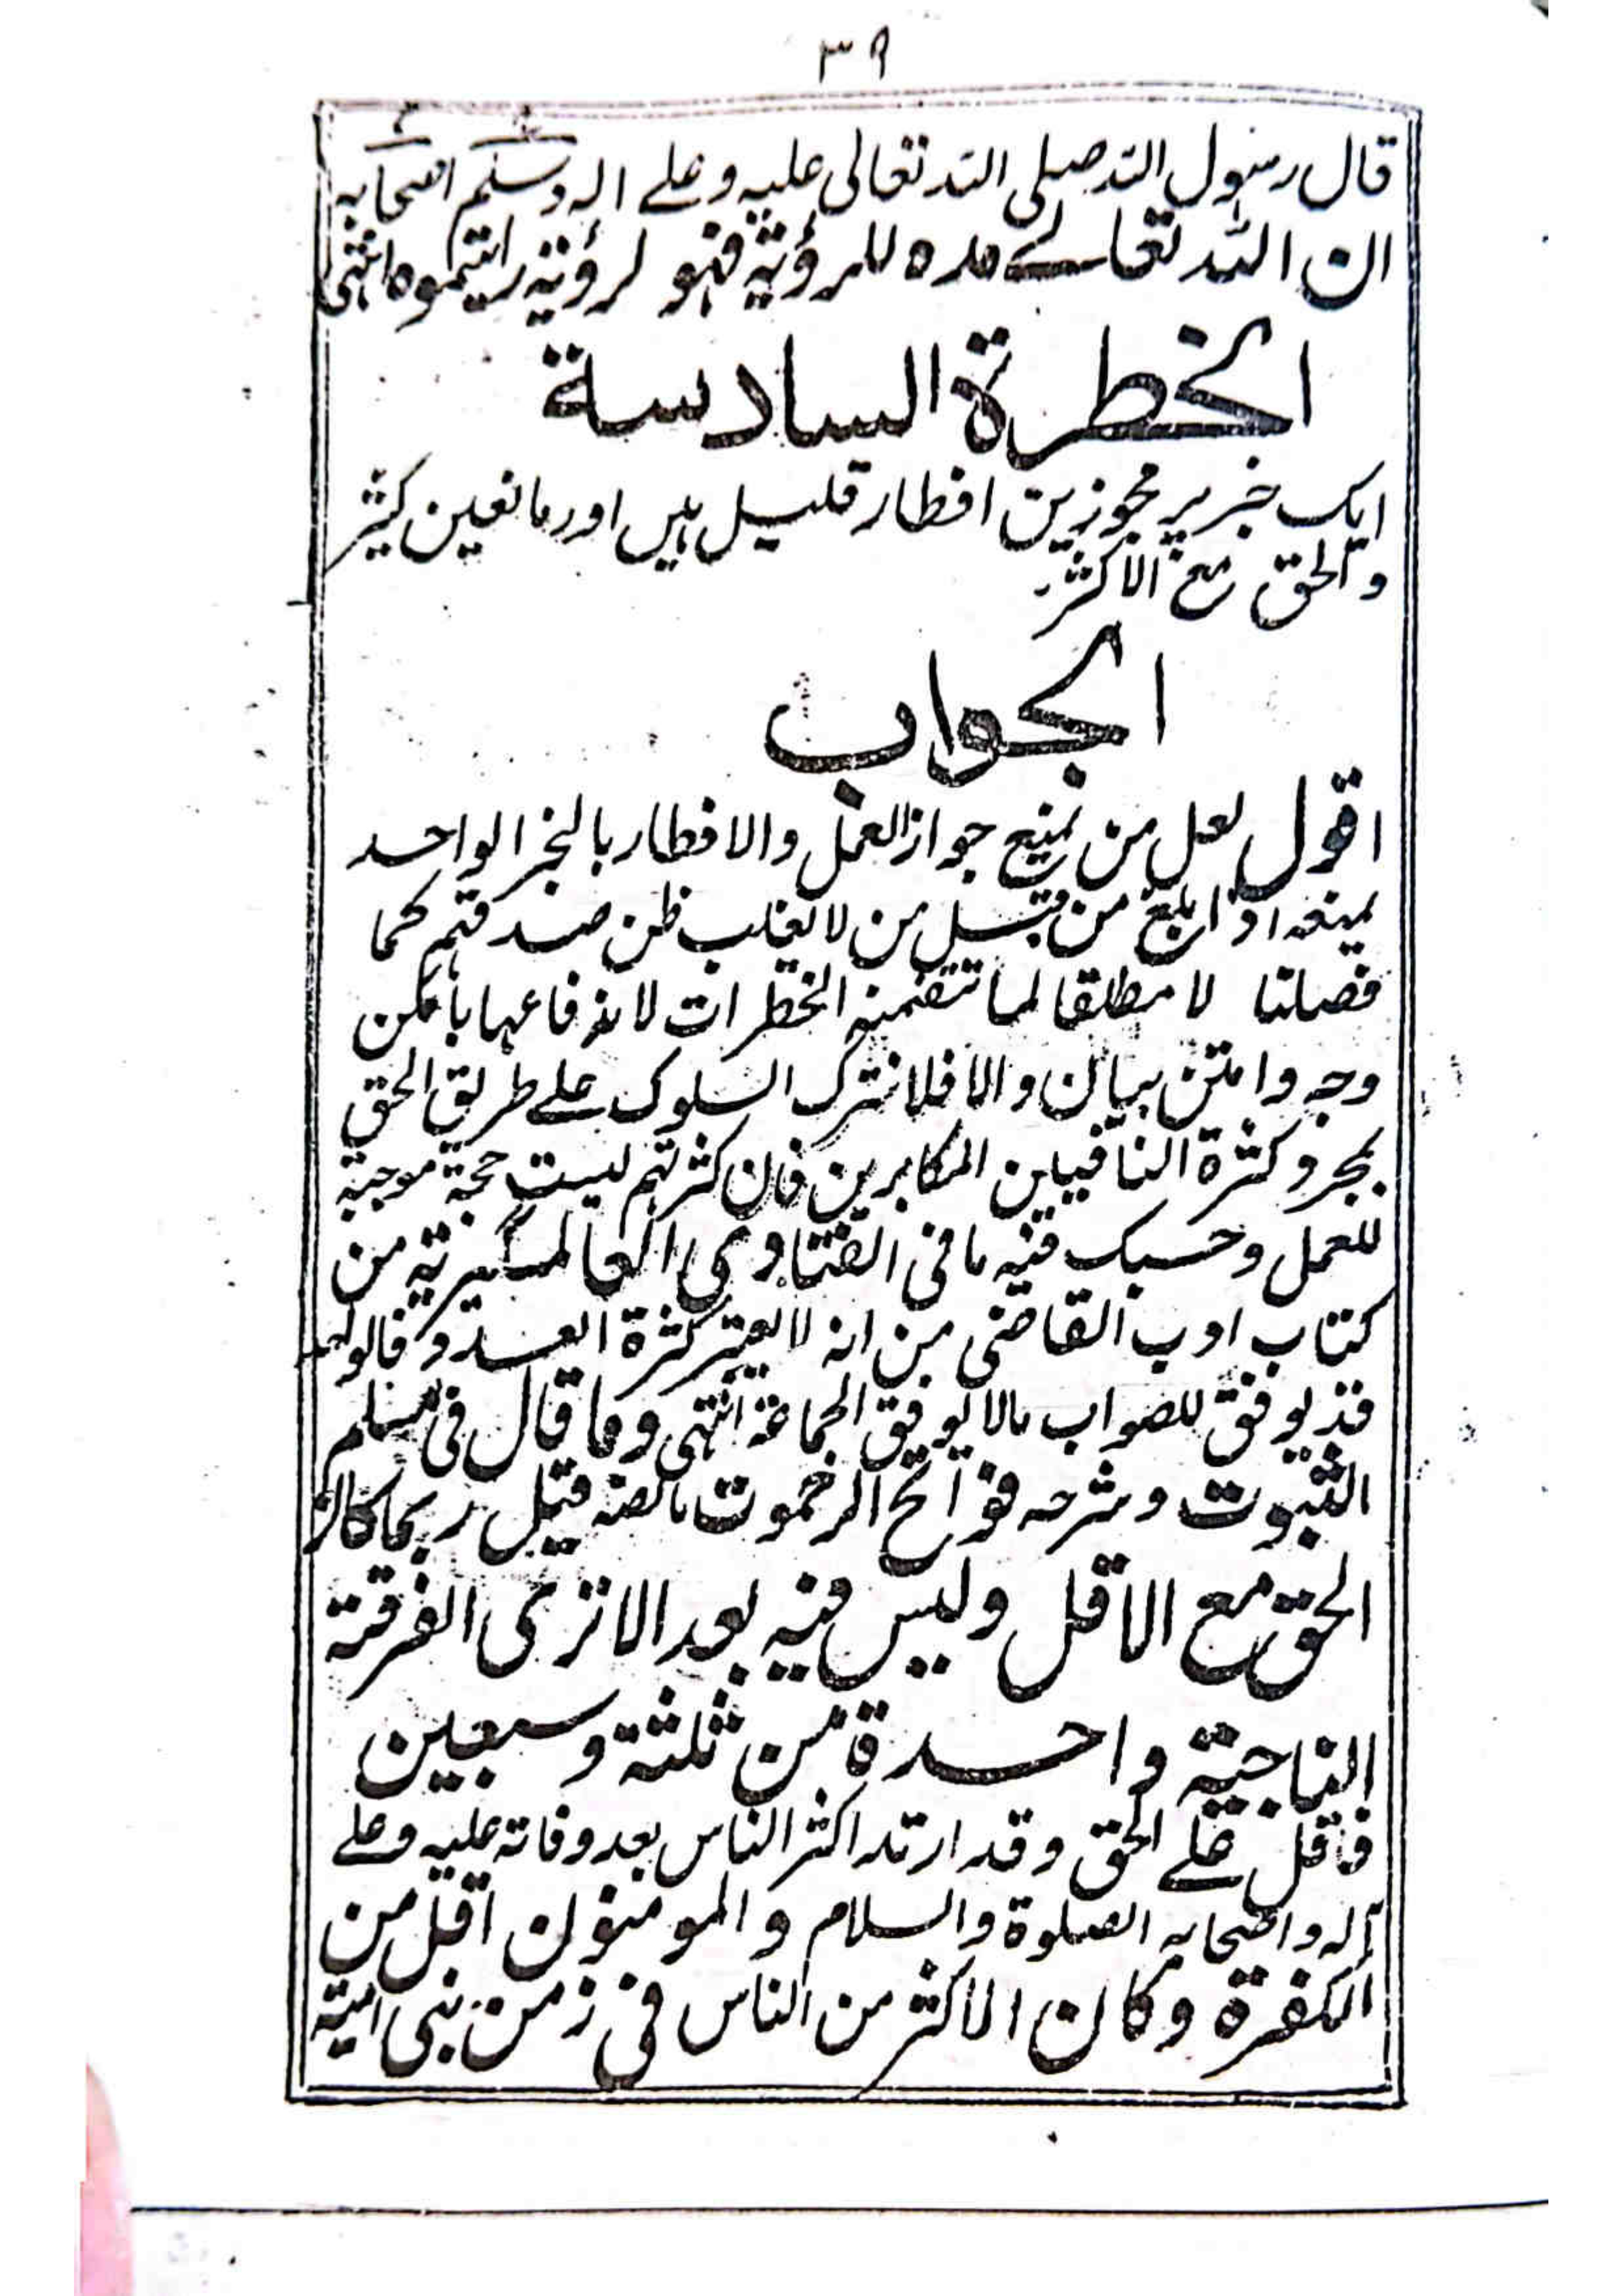 ٣٩
قال رسول الله صلی الله تعالی علیه و علے اله وسلم اصحابه
ان الله تعالے مده للرؤیة فهو لرؤیة رایتموه انتهی
الخطرة السادسة
ایک خبر پر مجوزین افطار قلیل ہیں اور مانعین کثیر
والحق مع الاکثر
الجواب
اقول لعل من یمنع جواز العمل والافطار بالخبر الواحد
یمنعه اذا بلغ من قبل من لا یغلب ظن صدقهم کما
فصلنا لا مطلقا لما تتضمنه الخطرات لاندفاعها بامکن
وجه وامتن بیان والا فلا نترک السلوک علے طریق الحق
بمجرد کثرة النافیین المکابرین فان کثرتهم لیست حجة موجبة
للعمل وحسبک فیه ما فی الفتاوی العالمگیریة من
کتاب ادب القاضی من انه لا یعتبر کثرة العدد فالواحد
قد یوفق للصواب مالا یوفق الجماعة انتهی وما قال فی مسلم
الثبوت وشرحه فواتح الرحموت مانصه قیل ربما کان
الحق مع الاقل ولیس فیه بعد الا تری الفرقة
الناجیة واحدة من ثلثة وسبعین
فاقل علے الحق وقد ارتد اکثر الناس بعد وفاته علیه وعلے
آله واصحابه الصلوة والسلام والمومنون اقل من
الکفرة وکان الاکثر من الناس فی زمن بنی امیة